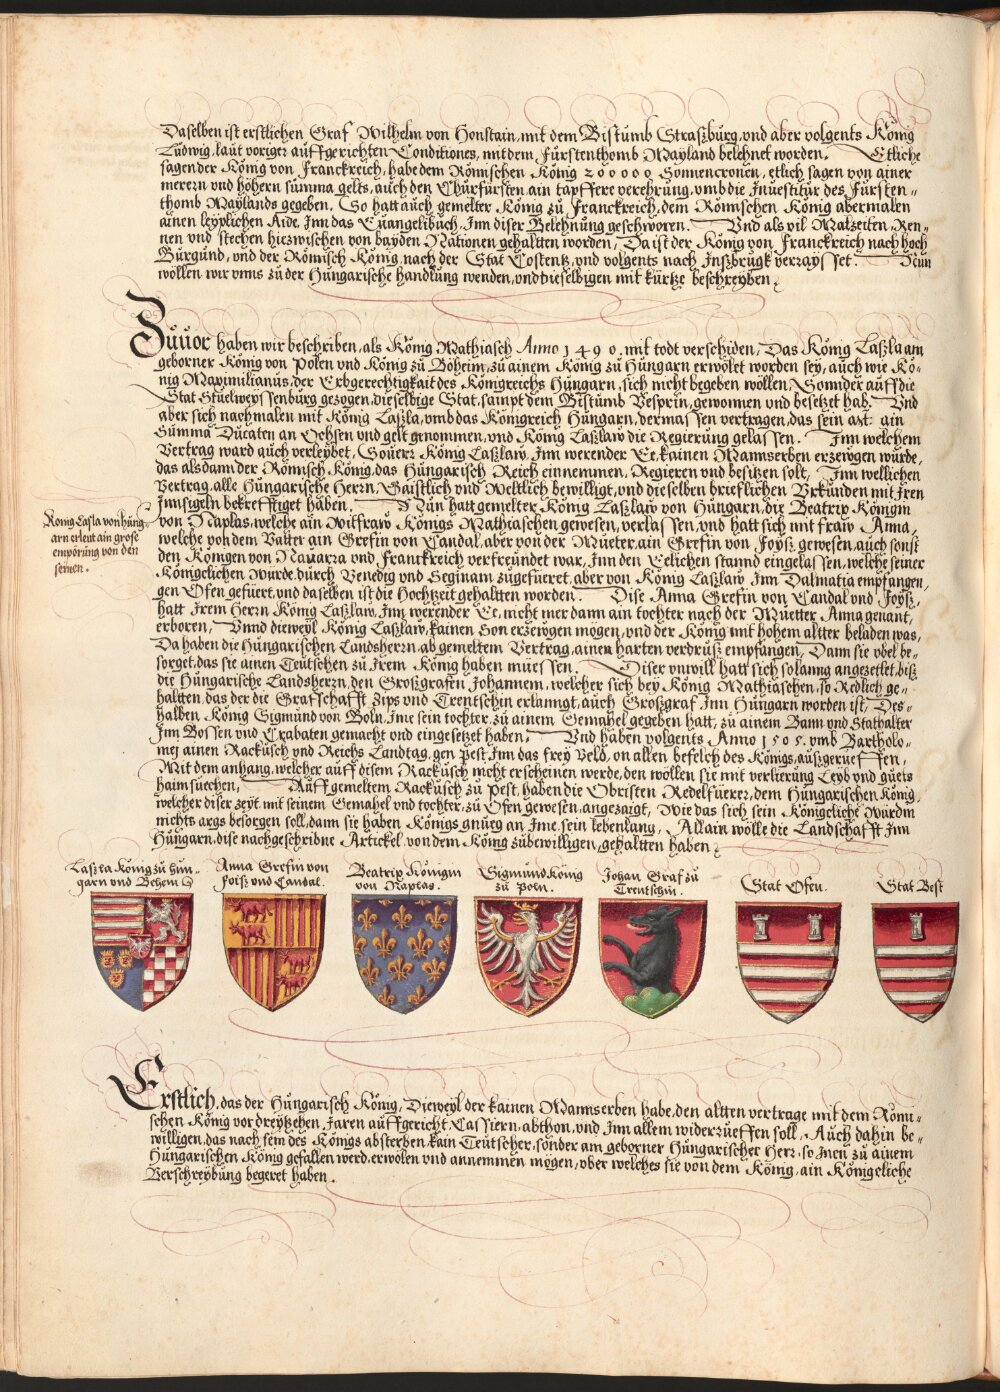 Daselben ist erstlichen Graf Wilhelm von Honstain, mit dem Bistumb Straßburg, vnd aber volgents König
Ludwig, laut voriger auffgerichten Conditiones, mit dem Fürstenthomb Mayland belehnet worden. Etliche
sagen der König von Franckreich, habe dem Römischen König 200000 Sonnencronen, etlich sagen von ainer
merern vnd höhern summa gelts, auch den Churfürsten ain tapffere verehrung, vmb die Inuestitur des Fürsten=
thomb Maylands gegeben. So hatt auch gemelter König zu Franckreich, dem Römischen König abermalen
ainen leyplichen Aide, Inn das Euangelibuch, Inn diser Belehnung geschworen. Vnd als vil Malzeiten, Ren=
nen vnd stechen hiezwischen von bayden Nationen gehaltten worden, Da ist der König von Franckreich nach hoch
Burgund, vnd der Römisch König, nach der Stat Costentz, vnd volgents nach Inßbrugk verraysset. Nun
wöllen wir vnns zu der Hungarische handlung wenden, vnd dieselbigen mit kurtze beschreyben.
Zuuor haben wir beschriben, als König Mathiasch Anno 1490. mit todt verschiden, Das König Laßla am
geborner König von Polen vnd König zu Böheim, zu ainem König zu Hungarn erwölet worden sey, auch wie Kö=
nig Maximilianus, der Erbgerechtigkait des Königreichs Hungarn, sich nicht begeben wöllen, Sonnder auff die
Stat Stuelweyssenburg gezogen, dieselbige Stat, sampt dem Bistumb Vesprin, gewonnen vnd besetzet hab. Vnd
aber sich nachmalen mit König Laßla, vmb das Königreich Hungarn, dermassen vertragen, das sein Mt: ain
Summa Ducaten an Ochsen vnd gelt genommen, vnd König Laßlaw die Regierung gelassen. Inn welchem
Vertrag ward auch verleybet, Souerr König Laßlaw, Inn werender Ee, kainen Mannserben erzewgen wurde,
das alsdann der Römisch König, das Hungarisch Reich einnemmen, Regieren vnd besitzen solt, Inn wellichen
Vertrag, alle Hungarische Herrn, Gaistlich vnd Weltlich bewilligt, vnd dieselben brieflichen Vrkunden mit Iren
Innsigeln bekrefftiget haben. Nun hatt gemelter König Laßlaw von Hungarn, die Beatrix Königin
von Naplas, welche ain Witfraw Königs Mathiaschen gewesen, verlassen, vnd hatt sich mit fraw Anna,
welche von dem Vatter ain Grefin von Candal, aber von der Mueter, ain Grefin von Foyß gewesen, auch sonst
den Königen von Nauarra vnd Franckreich verfreundet war, Inn den Eelichen stannd eingelassen, welche seiner
Königclichen Wurde, durch Venedig vnd Seginam zugefueret, aber von König Laßlaw Inn Dalmatia empfangen,
gen Ofen gefuert, vnd daselben ist die Hochzeit gehaltten worden. Dise Anna Grefin von Candal vnd Foyß,
hatt Irem Herrn König Laßlaw, Inn werender Ee, nicht mer dann ain tochter nach der Muetter Anna genant,
erboren, Vnnd dieweyl König Laßlaw, kainen Son erzewgen mögen, vnd der König mit hohem altter beladen was,
Da haben die Hungarischen Landsherrn, ab gemeltem Vertrag, ainen harten verdruß empfangen, Dann sie vbel be=
sorget, das sie ainen Teutschen zu Irem König haben müessen. Diser vnwill hatt sich solanng angezettlet, biß
die Hungarische Landsherrn, den Großgrafen Johannem, welcher sich bey König Mathiaschen, so Redlich ge=
haltten, das der die Grafschafft Zips vnd Trentschin erlanngt, auch Großgraf Inn Hungarn worden ist, Des=
halben König Sigmund von Poln, Ime sein tochter, zu ainem Gemahel gegeben hatt, zu ainem Bann vnd Stathalter
Inn Bossen vnd Crabaten gemacht vnd eingesetzet haben. Vnd haben volgents Anno 1505. vmb Bartholo=
mej ainen Rackusch vnd Reichs Landtag, gen Pest Inn das frey Veld, on allen befelch des Königs, außgerueffen,
Mit dem anhang, welcher auff disem Rackusch nicht erscheinen werde, den wöllen sie mit verlierung Leyb vnd guets
haimsuechen, Auff gemeltem Rackusch zu Pest, haben die Obristen Redelfüerer, dem Hungarischen König,
welcher diser zeyt mit seinem Gemahel vnd tochter, zu Ofen gewesen, angezaigt, Wie das sich sein Königcliche Wurdin
nichts args besorgen soll, dann sie haben Königs gnueg an Ime, sein lebenlang, Allain wölle die Landschafft Inn
Hungarn, dise nachgeschribne Artickel, von dem König zubewilligen, gehaltten haben.
König Lasla von hung=
arn erleut ain grose
empörung von den
seinen.
Laßla König zu Hun=
garn vnd Behem
Anna Grefin von
Foiß vnd Candal.
Beatrix Königin
von Naplas.
Sigmund König
zu Poln.
Johan Graf zu
Trentschin.
Stat Ofen.
Stat Best
Erstlich, das der Hungarisch König, Dieweyl der kainen Mannserben habe, den altten vertrage mit dem Römi=
schen König vor dreytzehen Jaren auffgericht, Cassiern, abthon, vnd Inn allem widerrueffen soll, Auch dahin be=
willigen, das nach sein des Königs absterben, kain Teutscher, sonder am geborner Hungarischer Herr, so Inen zu ainem
Hungarischen König gefallen werd, erwölen vnd annemmen mögen, vber welches sie von dem König, ain Königcliche
Verschreybung begeret haben.